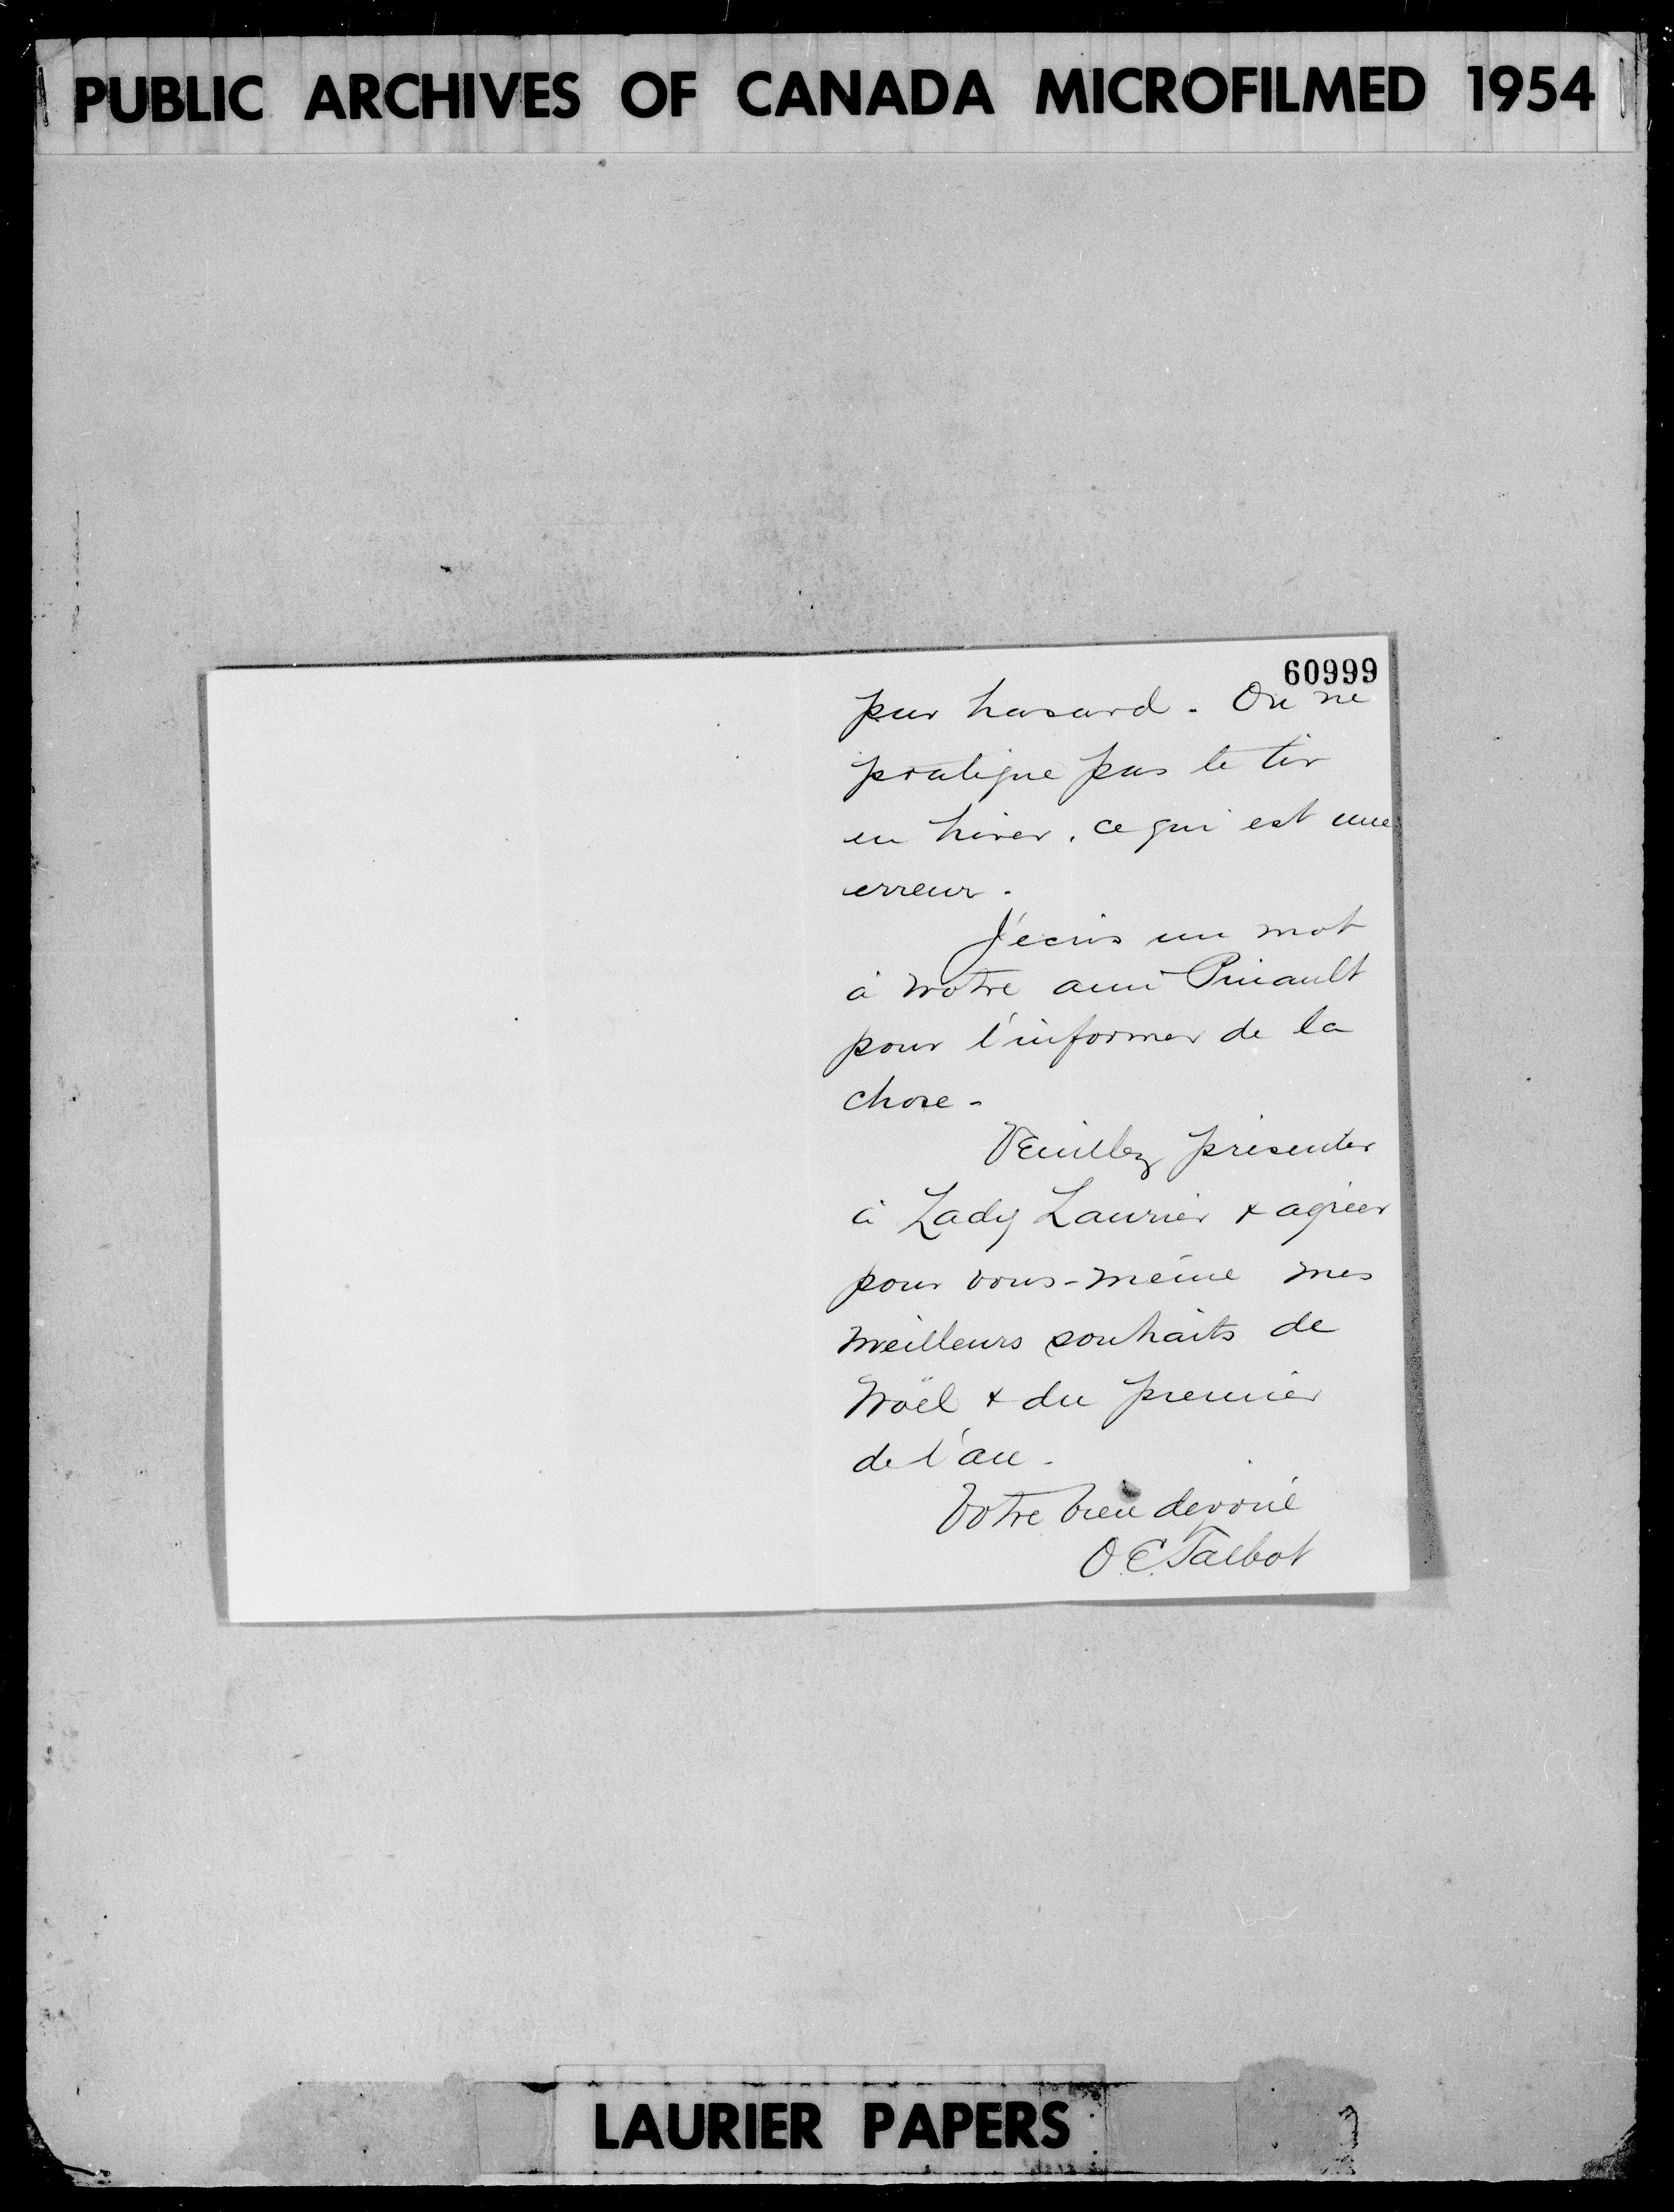 PUBLIC ARCHIVES OF CANADA MICROFILMED 1954
60999
par hasard. On ne
pratique pas le tir
en hiver, ce qui est une
erreur.
J'écris un mot
à notre ami Pinault
pour l'informer de la
chose-
Veuillez présenter
à Lady Laurier & agréer
pour vous-même mes
meilleurs souhaits de
Noël & du premier
de l'an-
Votre bien dévoué
O.E. Talbot
LAURIER PAPERS